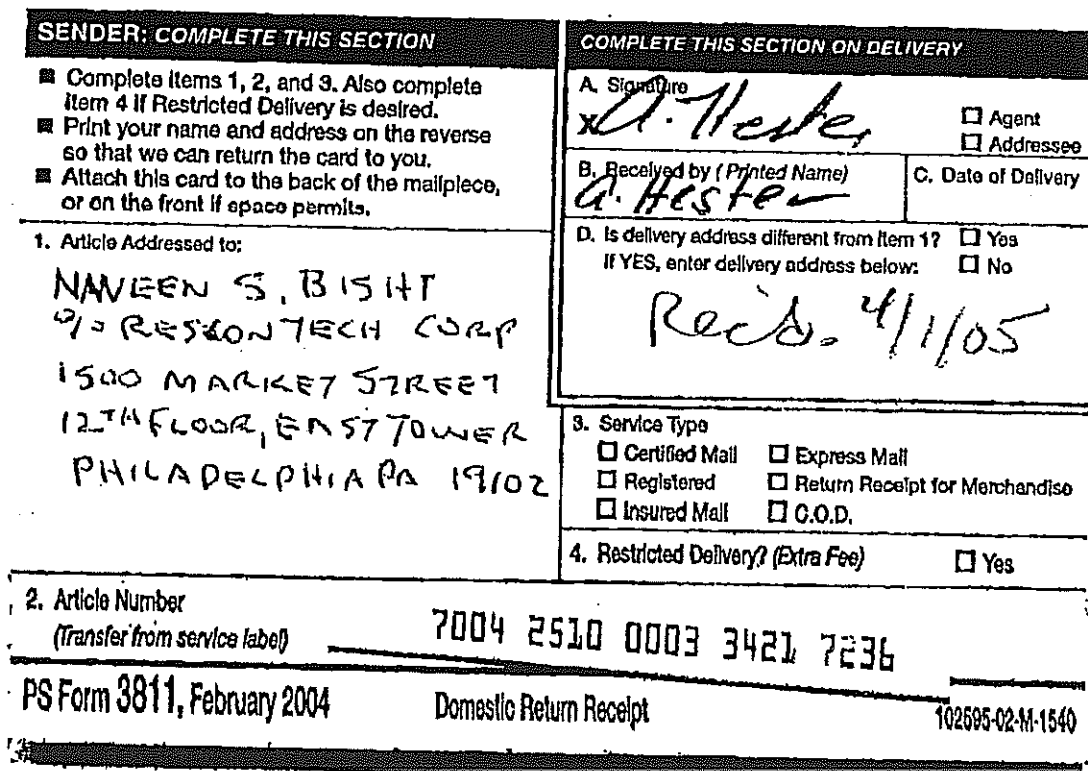 SENDER: COMPLETE THIS SECTION
■ Complete items 1, 2, and 3. Also complete
item 4 if Restricted Delivery is desired.
■ Print your name and address on the reverse
so that we can return the card to you.
■ Attach this card to the back of the mailpiece,
or on the front if space permits.
1. Article Addressed to:
NAVEEN S. BISHT
c/o RESCONTECH CORP
1500 MARKET STREET
12TH FLOOR, EAST TOWER
PHILADELPHIA PA 19102
COMPLETE THIS SECTION ON DELIVERY
A. Signature
X A. Hester
☐ Agent
☐ Addressee
B. Received by (Printed Name)
A. Hester
C. Date of Delivery
D. Is delivery address different from item 1? ☐ Yes
If YES, enter delivery address below: ☐ No
Rec'd. 4/1/05
3. Service Type
☐ Certified Mail ☐ Express Mail
☐ Registered ☐ Return Receipt for Merchandise
☐ Insured Mail ☐ C.O.D.
4. Restricted Delivery? (Extra Fee) ☐ Yes
2. Article Number
(Transfer from service label)
7004 2510 0003 3421 7236
PS Form 3811, February 2004
Domestic Return Receipt
102595-02-M-1540